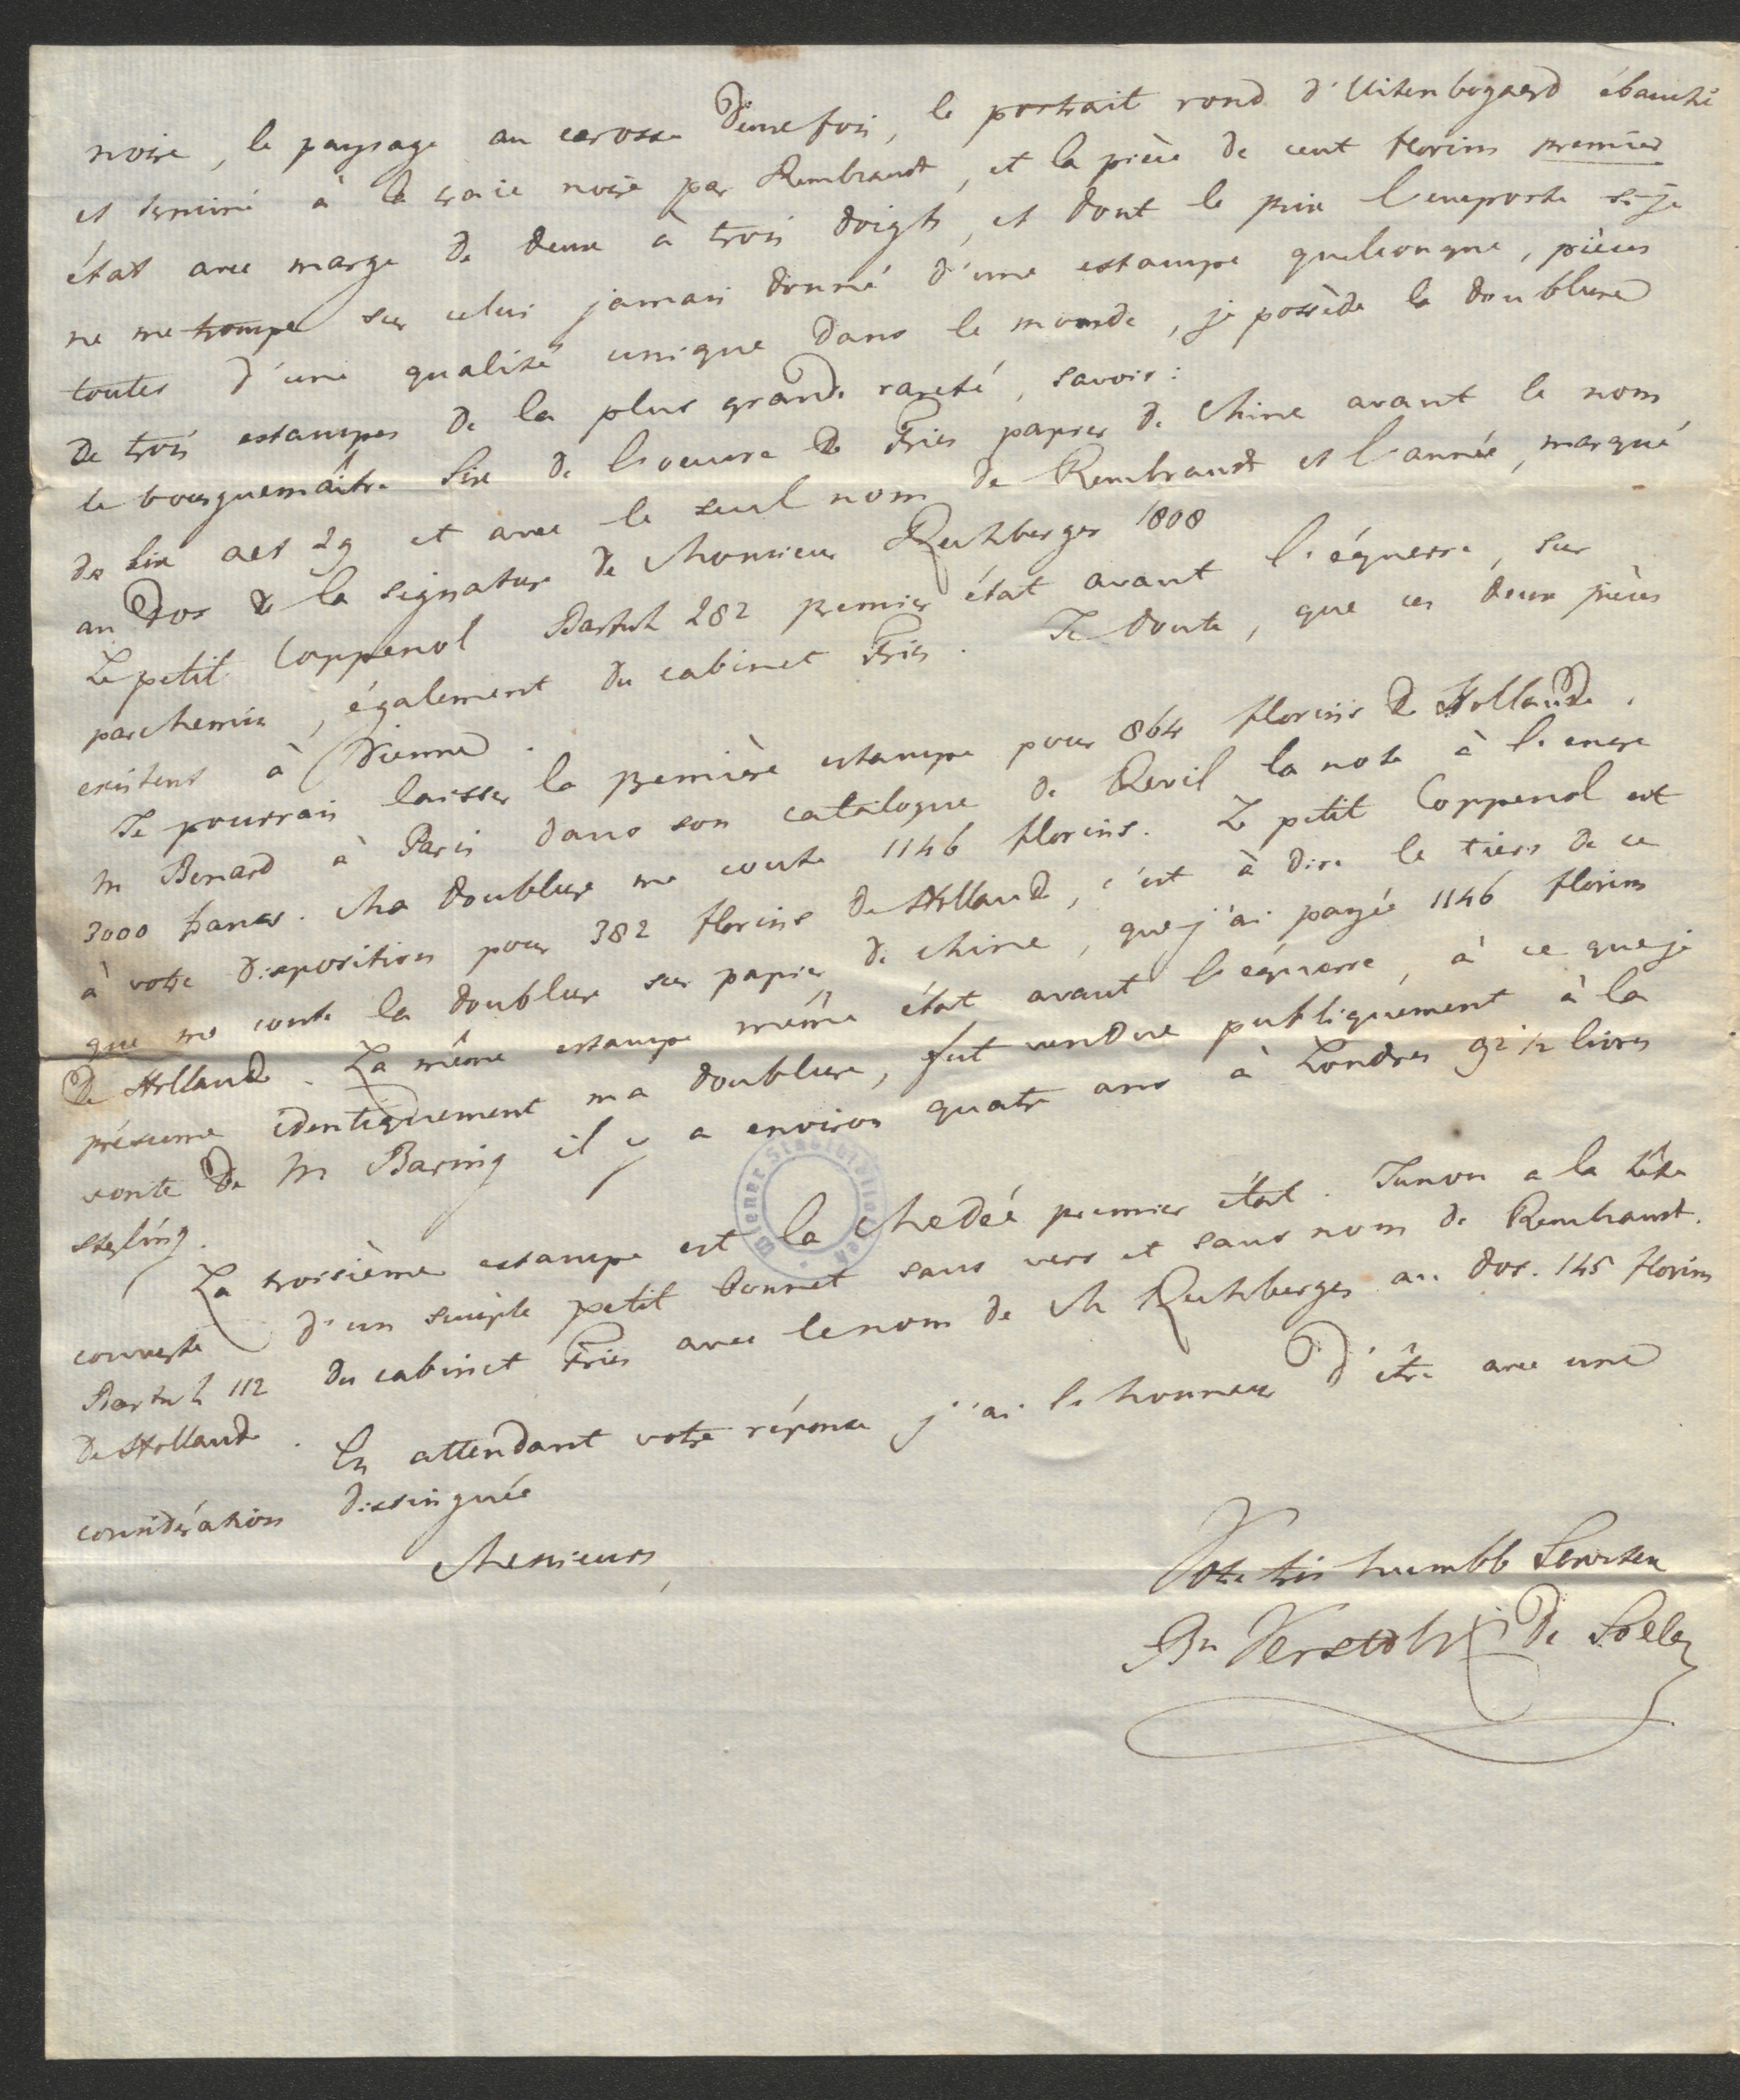 noire, le paysage au carosse d'une fois, le portrait rond d'Uitenbogaerd ébauché
et terminé à la craie noire par Rembrandt, et la pièce de cent florins premier
état avec marge de deux à trois doigts, et dont le prix l'emporte si je
ne me trompe sur celui jamais donné d'une estampe quelconque, pièces
toutes d'une qualité unique dans le monde, je possède la doublure
de trois estampes de la plus grande rareté, savoir:
le bourguemaître Six de l'oeuvre de Fries papier de Chine avant le nom
de Six aet 29 et avec le seul nom de Rembrandt et l'année, marqué
au dos de la signature de Monsieur Rechberger 1808
Le petit Coppenol Bartsch 282 premier état avant l'équerre, sur
parchemin, également du cabinet Fries. Je doute, que ces deux pièces
existent à Vienne.
Je pourrais laisser la première estampe pour 864 florins de Hollande.
M Benard à Paris dans son catalogue de Revil la nota à l'encre
3000 francs. Ma doublure me coute 1146 florins. Le petit Coppenol est
à votre disposition pour 382 florins de Hollande, c'est à dire le tiers de ce
que me coute la doublure sur papier de Chine, que j'ai payée 1146 florins
de Hollande. La même estampe même état avant l'équerre, à ce que je
présume identiquement ma doublure, fut vendue publiquement à la
vente de M Baring il y a environ quatre ans à Londres 92 1/2 livres
sterling.
La troisième estampe est la Medée premier état. Junon a la tête
couverte d'un simple petit bonnet sans vers et sans nom de Rembrandt.
Bartsch 112 du cabinet Fries avec le nom de M Rechberger au dos. 145 florins
de Hollande.
En attendant votre réponse j'ai l'honneur d'être avec une
considération distinguée
Messieurs,
Votre très humble Serviteur
Bn Verstolk de Soelen
Wiener Stadtbibliothek